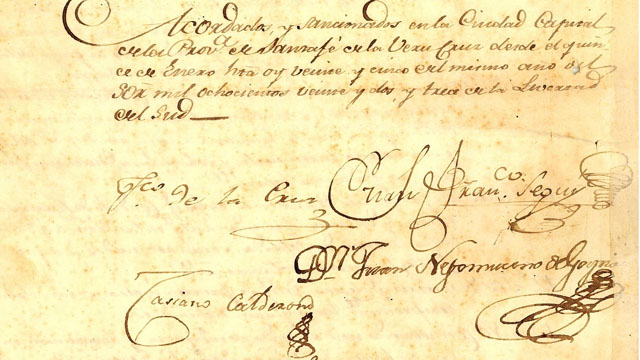 Acordados y sancionados en la Ciudad Capital
de la Prov.ª de Santafé de la Vera Cruz desde el quin
ce de Enero hta oy veinte y cinco del mismo año del
Sõr mil ochocientos veinte y dos y trece de la Livertad
del Sud
Fco. de la Cruz Juan Franco. Seguí
Dn. Juan Nepomuceno de Goyri
Casiano Calderon